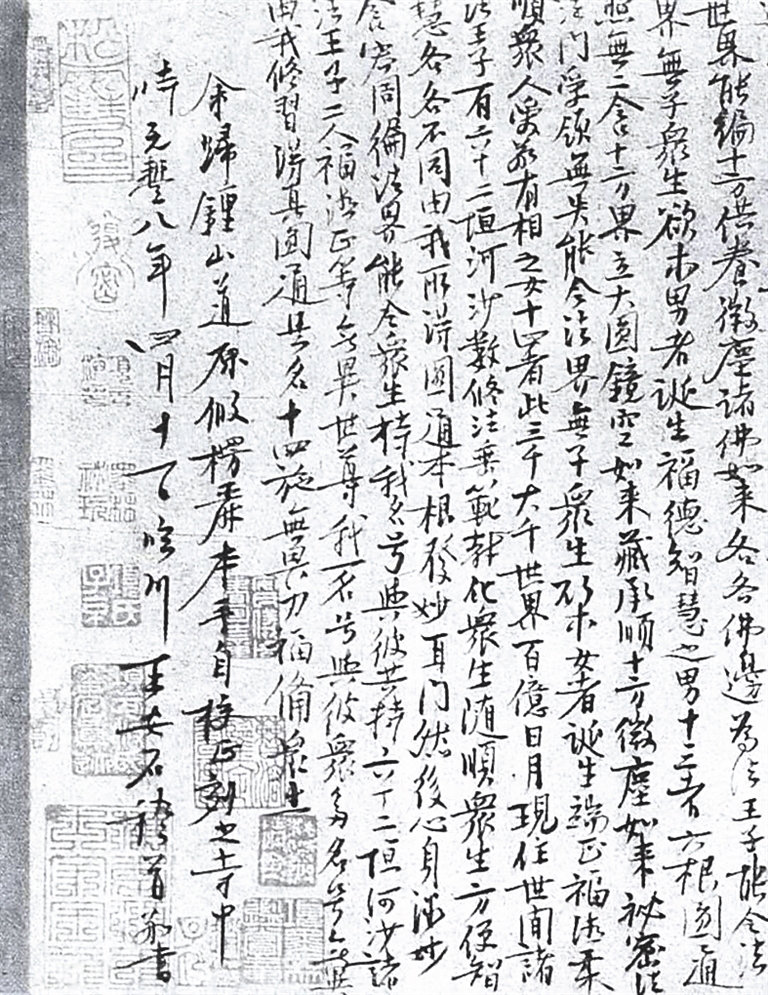 世界能徧十方供養微塵諸佛如来各各佛邊為法王子能令法
界無子衆生欲求男者誕生福德智慧之男十三者六根圓通
照無二含十方界立大圓鏡空如来藏承順十方微塵如来祕密法
法門受領無失能令法界無子衆生欲求女者誕生端正福德柔
順衆人愛敬有相之女十四者此三千大千世界百億日月現住世間諸
法王子有六十二恒河沙數修法垂範教化衆生随順衆生方便智
慧各各不同由我所得圓通本根發妙耳門然後心身微妙
含容周徧法界能令衆生持我名号與彼共持六十二恒河沙諸
法王子二人福德正等無異世尊我一名号與彼衆多名号無異
由我修習得真圓通是名十四施無畏力福備衆生
余歸鍾山道原假楞嚴本手自校正刻之寺中
時元豐八年四月十一日臨川王安石稽首敬書